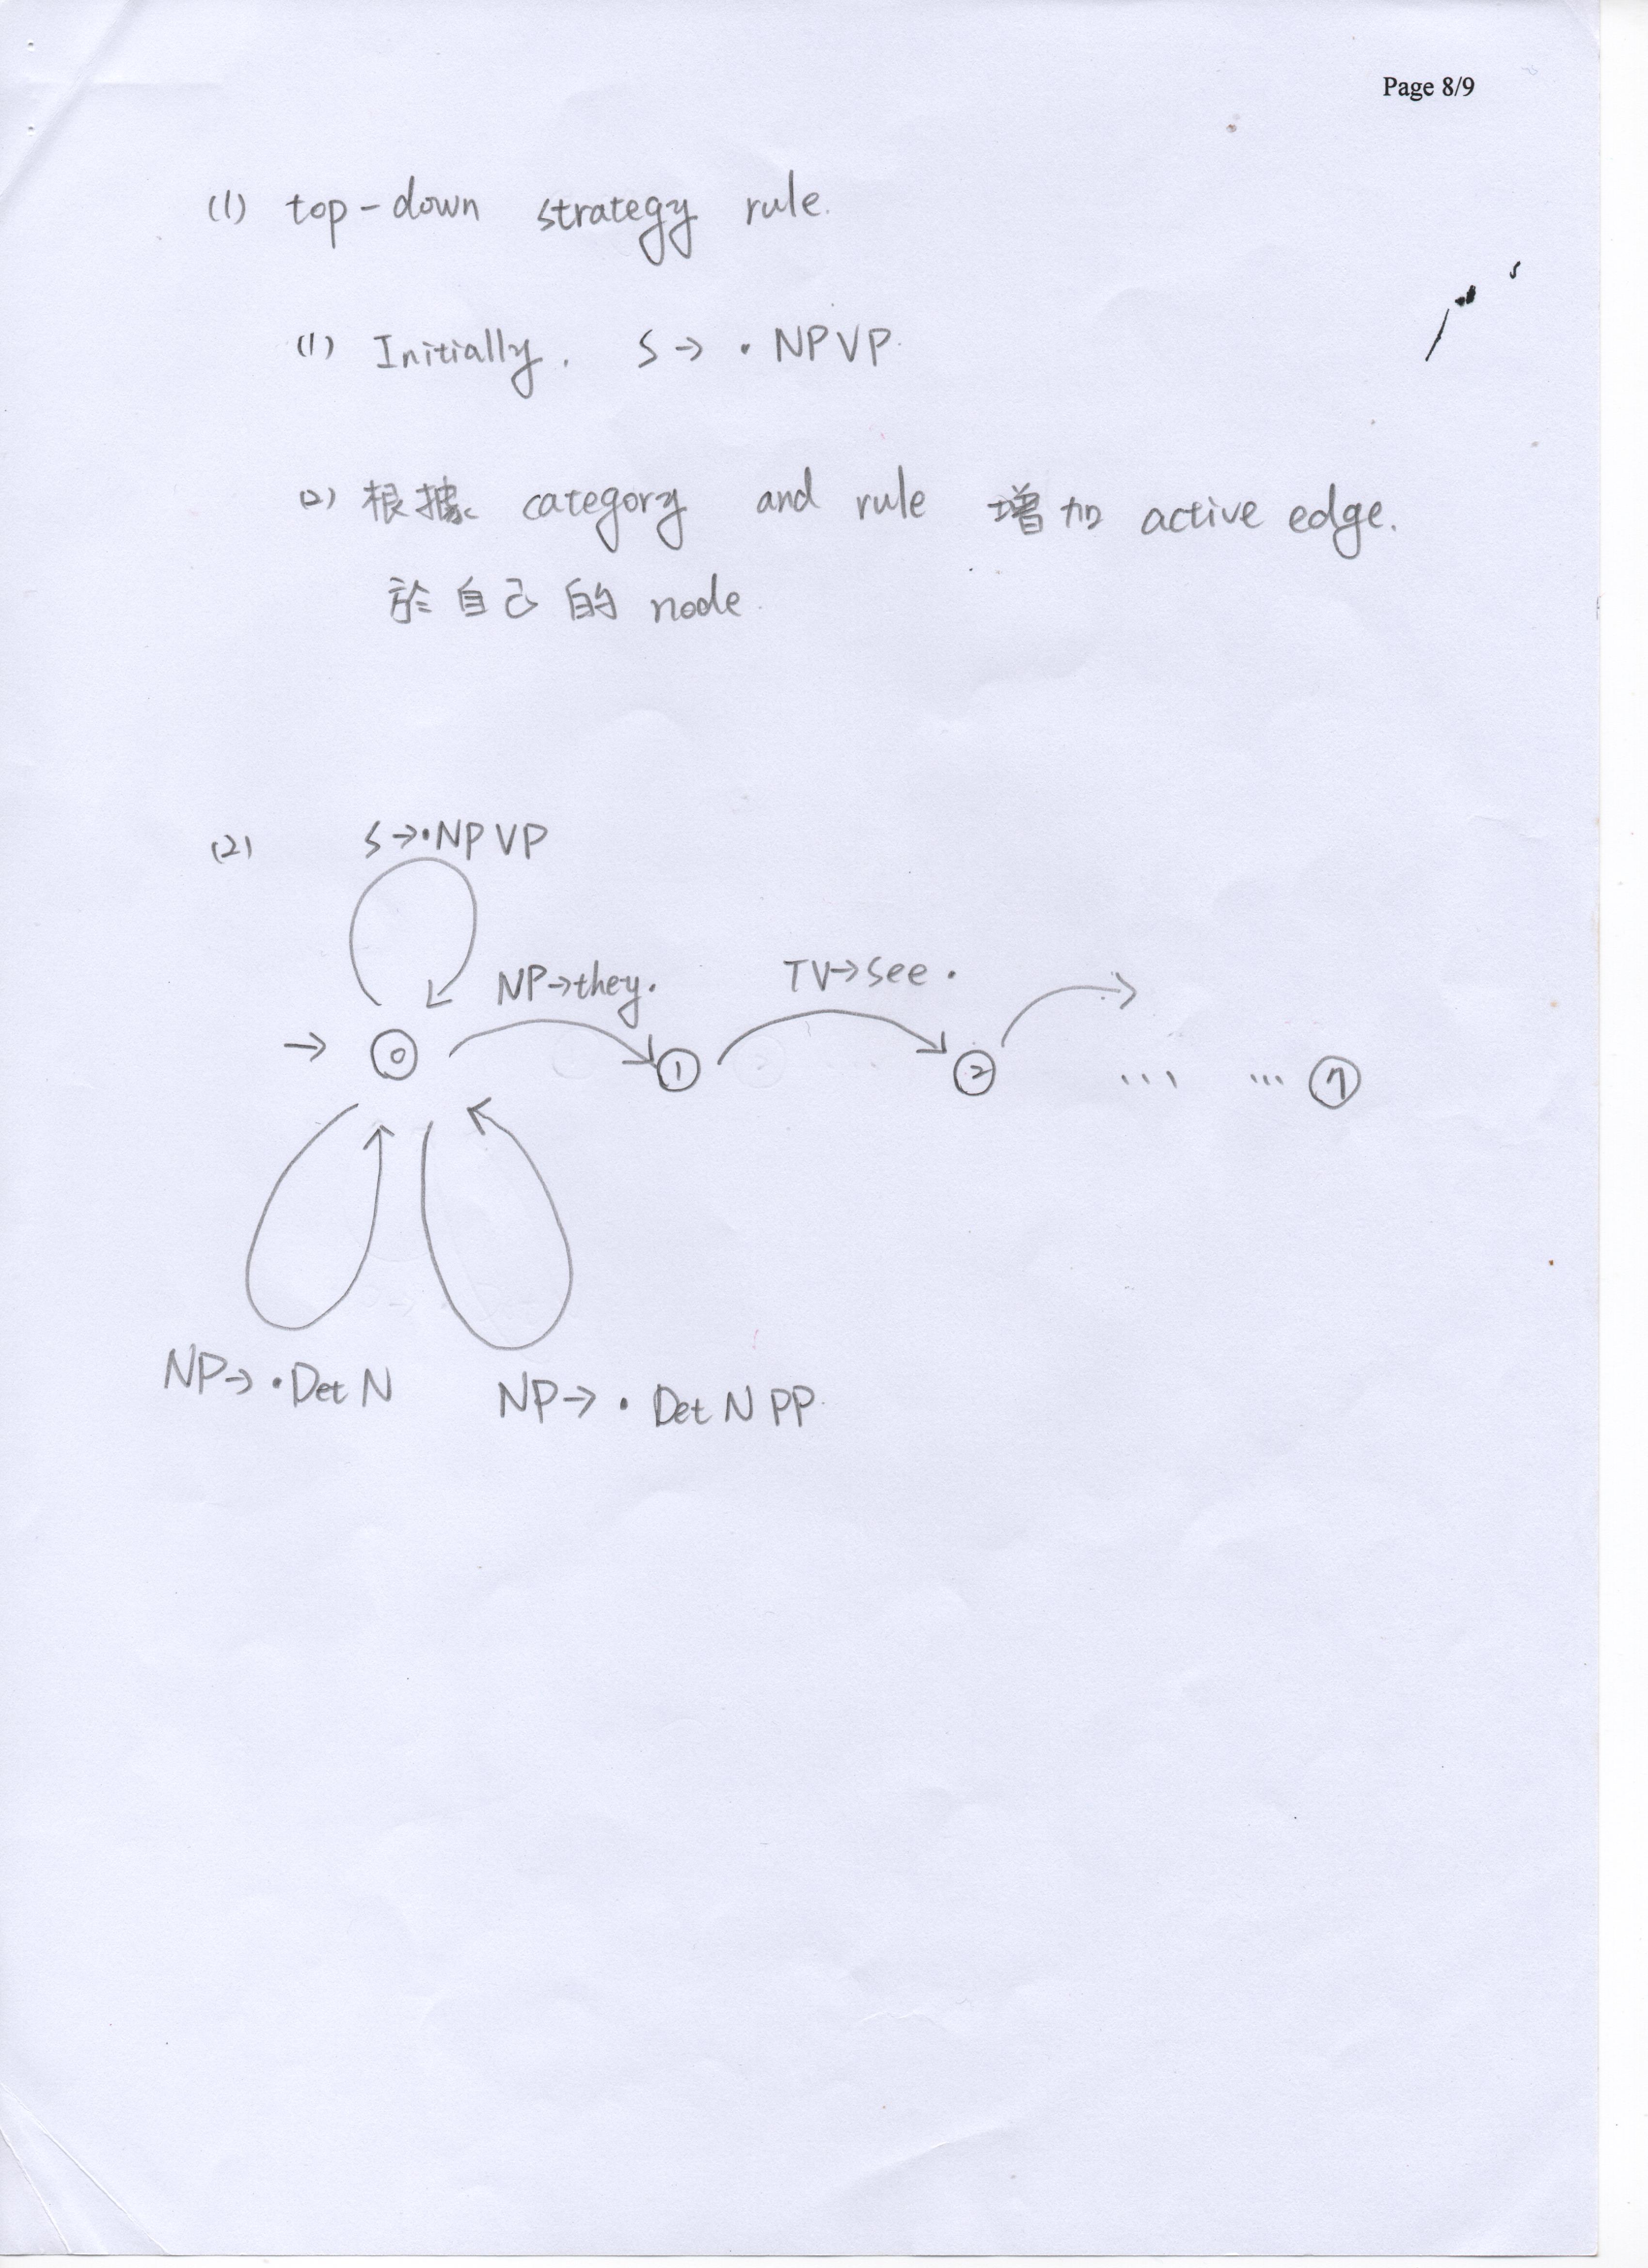 Page 8/9
(1) top-down strategy rule.
(1) Initially. S → • NP VP.
(2) 根據 category and rule 增加 active edge.
於自己的 node.
(2) S → • NP VP
NP → they.
TV → see •
→ 0 1 2 ... ... 7
NP → • Det N
NP → • Det N PP.